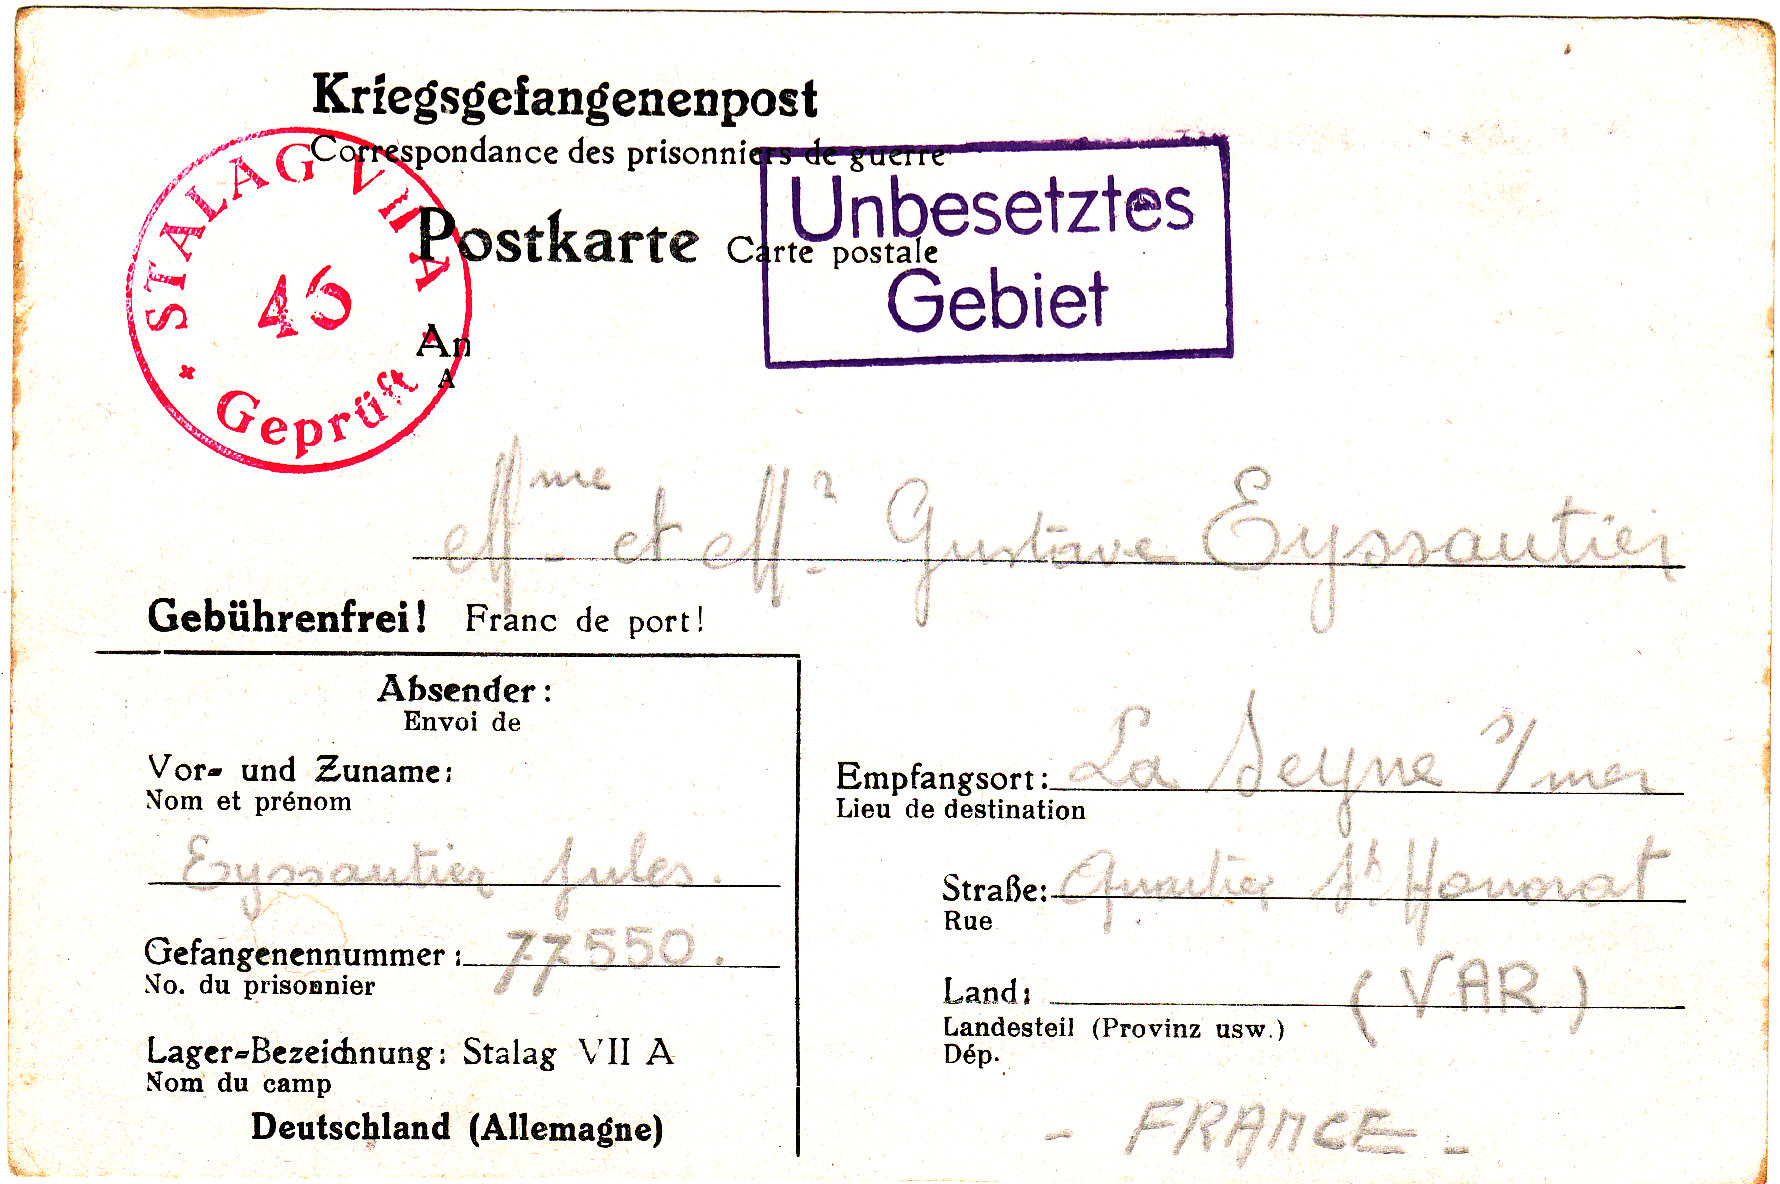 Kriegsgefangenenpost
Correspondance des prisonniers de guerre
STALAG VII A
46
Geprüft
Unbesetztes
Gebiet
Postkarte Carte postale
An
A
Mme et Mr Gustave Eyssautier
Gebührenfrei! Franc de port!
Absender:
Envoi de
Vor- und Zuname:
Nom et prénom
Eyssautier Jules.
Gefangenennummer: 77550.
No. du prisonnier
Lager-Bezeichnung: Stalag VII A
Nom du camp
Deutschland (Allemagne)
Empfangsort: La Seyne s/mer
Lieu de destination
Straße: Quartier St Honorat
Rue
Land: (VAR)
Landesteil (Provinz usw.)
Dép.
- FRANCE -